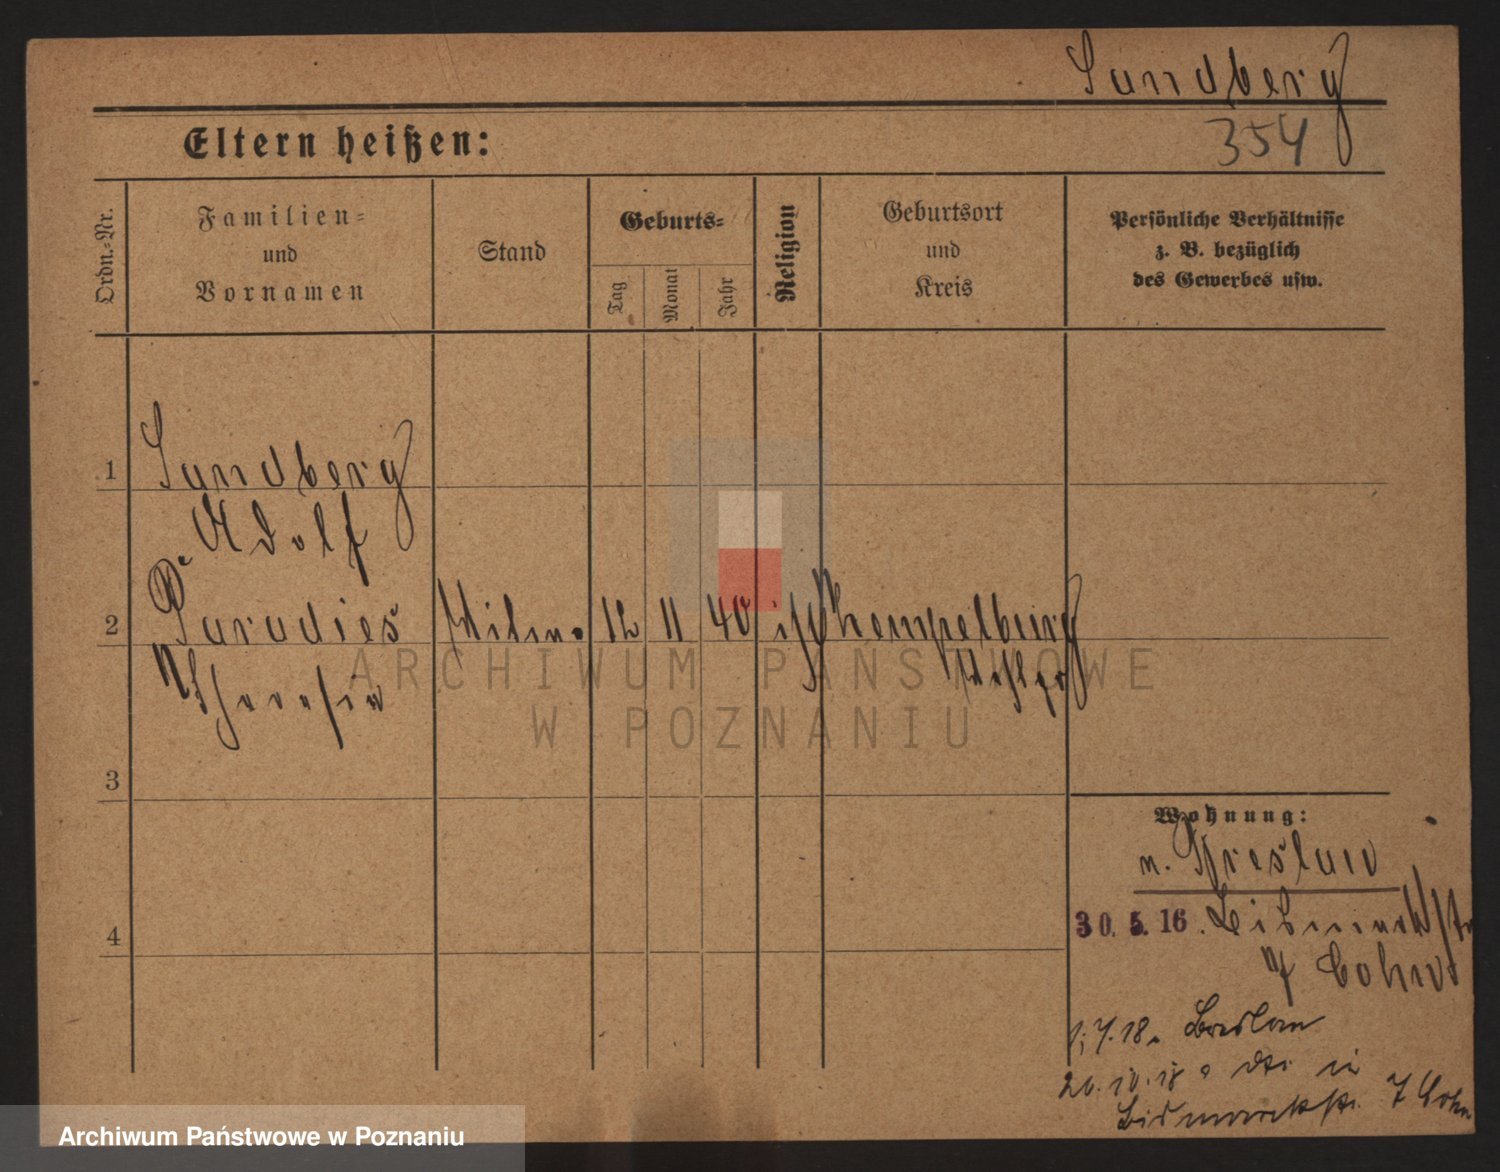 Sandberg
354
Eltern heißen:
Ordn.-Nr.
Familien-
und
Vornamen
Stand
Geburts-
Tag
Monat
Jahr
Religion
Geburtsort
und
Kreis
Persönliche Verhältnisse
z. B. bezüglich
des Gewerbes usw.
1
Sandberg
Adolf
2
Paradies Witwe 12 11 40
Kempelburg
3
4
ARCHIWUM PAŃSTWOWE
W POZNANIU
Wohnung:
n. Breslau
30. 5. 16. Bismarckstr
7 Cohn
1. 7. 18. Breslau
26. 10. 18
Bismarckstr. 7 Cohn
Archiwum Państwowe w Poznaniu